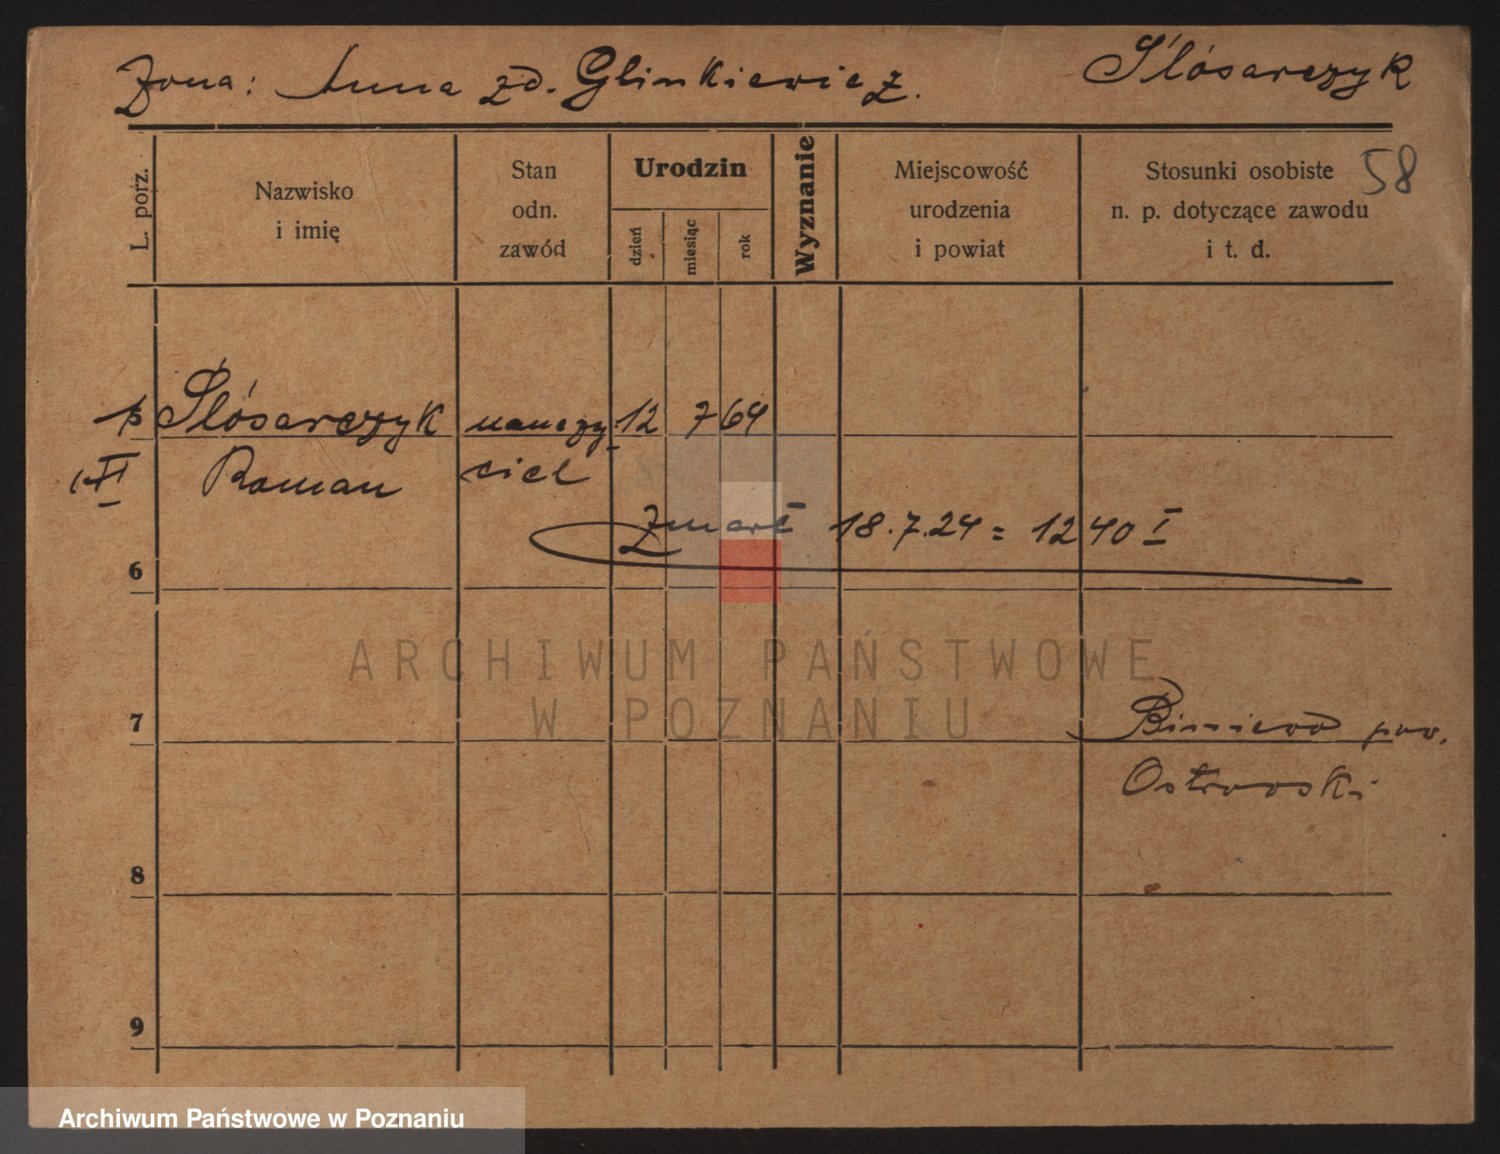 Żona: Anna zd. Glinkiewicz.
Ślósarczyk
58
L. porz.
Nazwisko
i imię
Stan
odn.
zawód
Urodzin
dzień
miesiąc
rok
Wyznanie
Miejscowość
urodzenia
i powiat
Stosunki osobiste
n. p. dotyczące zawodu
i t. d.
Ślósarczyk nauczy- 12 7 64
Roman ciel
Zmarł 18.7.24 = 1240 I
6
ARCHIWUM PAŃSTWOWE
W POZNANIU
7
Biniew pow.
Ostrowski
8
9
Archiwum Państwowe w Poznaniu